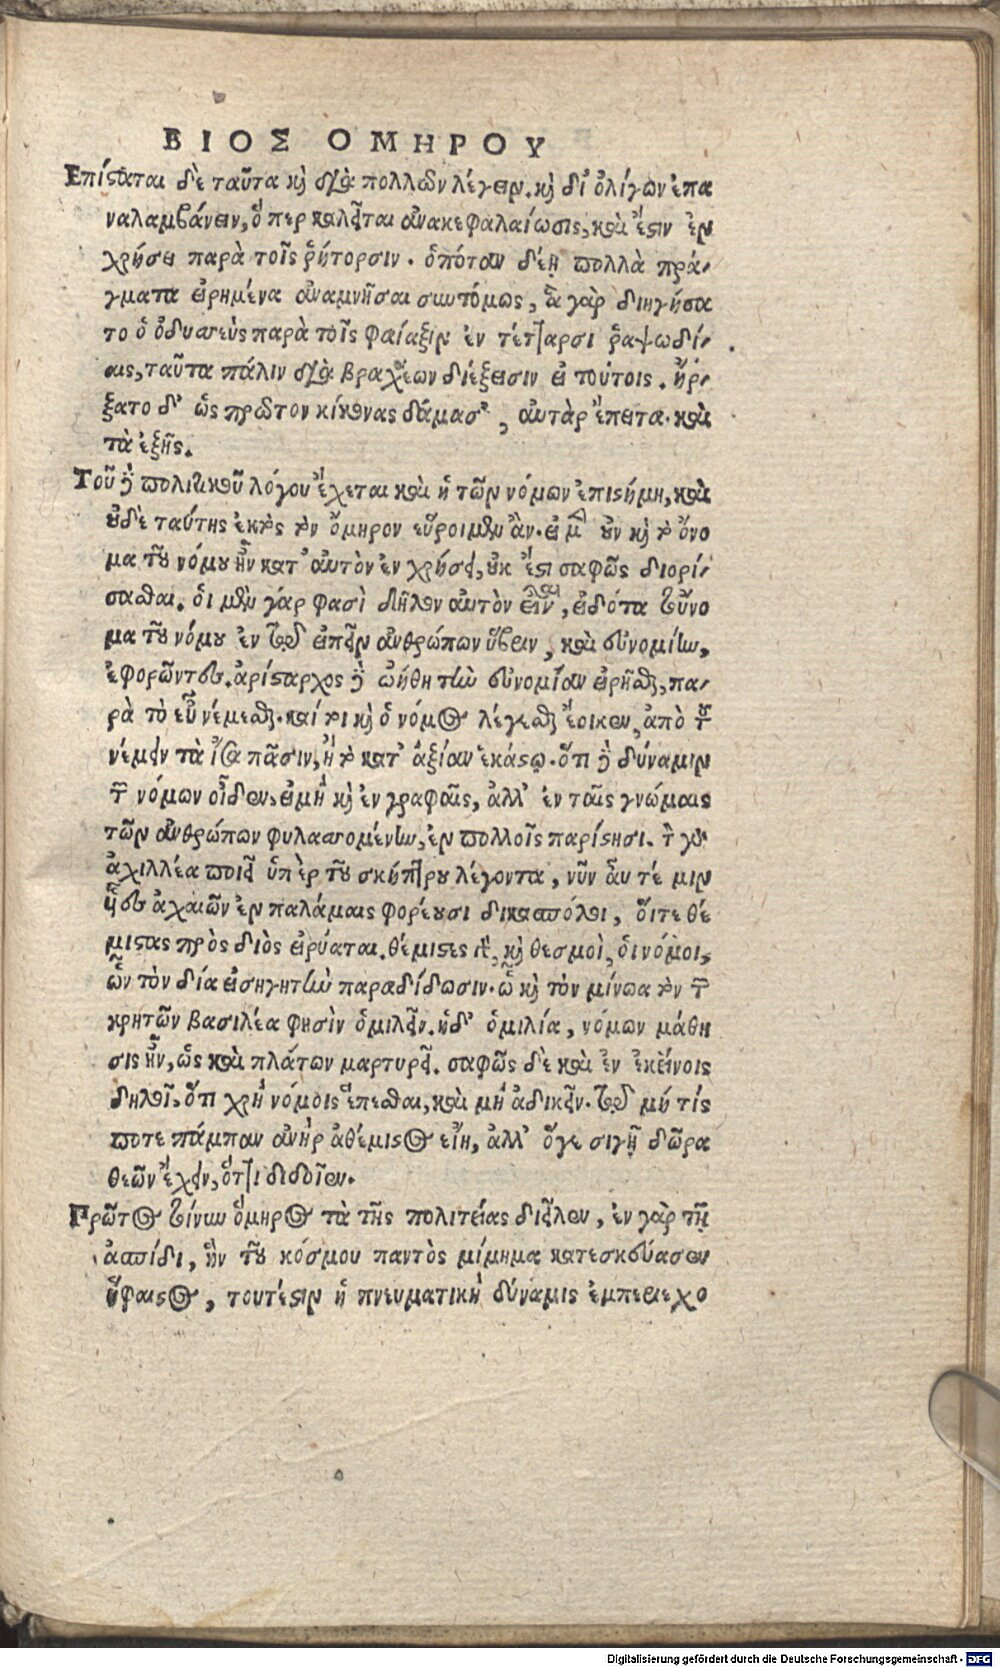 ΒΙΟΣ ΟΜΗΡΟΥ
Επίσαται δὲ ταῦτα κὶ διὰ πολλῶν λέγειν. κὶ δι' ὀλίγων ἐπα
ναλαμβάνειν, ὅ περ καλεῖται ἀνακεφαλαίωσις, καὶ ἔστιν ἐν
χρήσει παρὰ τοῖς ῥήτορσιν. ὁπόταν δέῃ πολλὰ πρά-
γματα εἰρημένα ἀναμνῆσαι συντόμως, ἃ γὰρ διηγήσα
το ὁ ὀδυσσεὺς παρὰ τοῖς φαίαξιν ἐν τέτταρσι ῥαψωδί-
αις, ταῦτα πάλιν διὰ βραχέων διέξεισιν ἐ τούτοις. ἤρ-
ξατο δ' ὡς πρῶτον κίκονας δάμασ', αὐτὰρ ἔπειτα. καὶ
τὰ ἑξῆς.
Τοῦ δὲ πολιτικοῦ λόγου ἔχεται καὶ ἡ τῶν νόμων ἐπιστήμη, καὶ
οὐδὲ ταύτης ἐκτὸς τὸν ὅμηρον εὕροιμεν ἂν. εἰ μὲν οὖν κὶ τὸ ὄνο
μα τοῦ νόμου ἦν κατ' αὐτὸν ἐν χρήσει, οὐκ ἔστι σαφῶς διορί-
σασθαι. ὁι μὲν γάρ φασὶ δῆλον αὐτὸν εἶναι, εἰδότα τοὔνο
μα τοῦ νόμου ἐν τῷ εἰπεῖν ἀνθρώπων ὕβριν, καὶ εὐνομίην,
ἐφορῶντες. ἀρίσταρχος δὲ ὠήθη τὴν εὐνομίαν εἰρῆσθαι, πα-
ρὰ τὸ εὖ νέμεσθαι. καί τοι κὶ ὁ νόμος λέγεσθαι ἔοικεν, ἀπὸ τοῦ
νέμειν τὰ ἴσα πᾶσιν, ἢ τὸ κατ' ἀξίαν ἑκάστῳ. ὅτι δὲ δύναμιν
τῶν νόμων οἶδεν, εἰ μὴ κὶ ἐν γραφαῖς, ἀλλ' ἐν ταῖς γνώμαις
τῶν ἀνθρώπων φυλασσομένην, ἐν πολλοῖς παρίστησι. τὸν γὰρ
ἀχιλλέα ποιεῖ ὑπὲρ τοῦ σκήπτρου λέγοντα, νῦν αὖ τέ μιν
ἷες ἀχαιῶν ἐν παλάμαις φορέουσι δικασπόλοι, ὅιτε θέ
μιστας πρὸς διὸς εἰρύαται. θέμιστες γὰρ, κὶ θεσμοὶ, ὁι νόμοι,
ὧν τὸν δία εἰσηγητὴν παραδίδωσιν. ᾧ κὶ τὸν μίνωα τὸν τῶν
κρητῶν βασιλέα φησὶν ὁμιλεῖν. ἡ δ' ὁμιλία, νόμων μάθη
σις ἦν, ὡς καὶ πλάτων μαρτυρεῖ. σαφῶς δὲ καὶ ἐν ἐκείνοις
δηλοῖ, ὅτι χρὴ νόμοις ἕπεσθαι, καὶ μὴ ἀδικεῖν. τῷ μή τίς
ποτε πάμπαν ἀνὴρ ἀθέμιστος εἴη, ἀλλ' ὅγε σιγῇ δῶρα
θεῶν ἔχειν, ὅττι διδοῖεν.
Πρῶτος τοίνυν ὅμηρος τὰ τῆς πολιτείας διεῖλεν, ἐν γὰρ τῇ
ἀσπίδι, ἣν τοῦ κόσμου παντὸς μίμημα κατεσκεύασεν
ἥφαιστος, τουτέστιν ἡ πνευματικὴ δύναμις ἐμπεριεχο
Digitalisierung gefördert durch die Deutsche Forschungsgemeinschaft - DFG